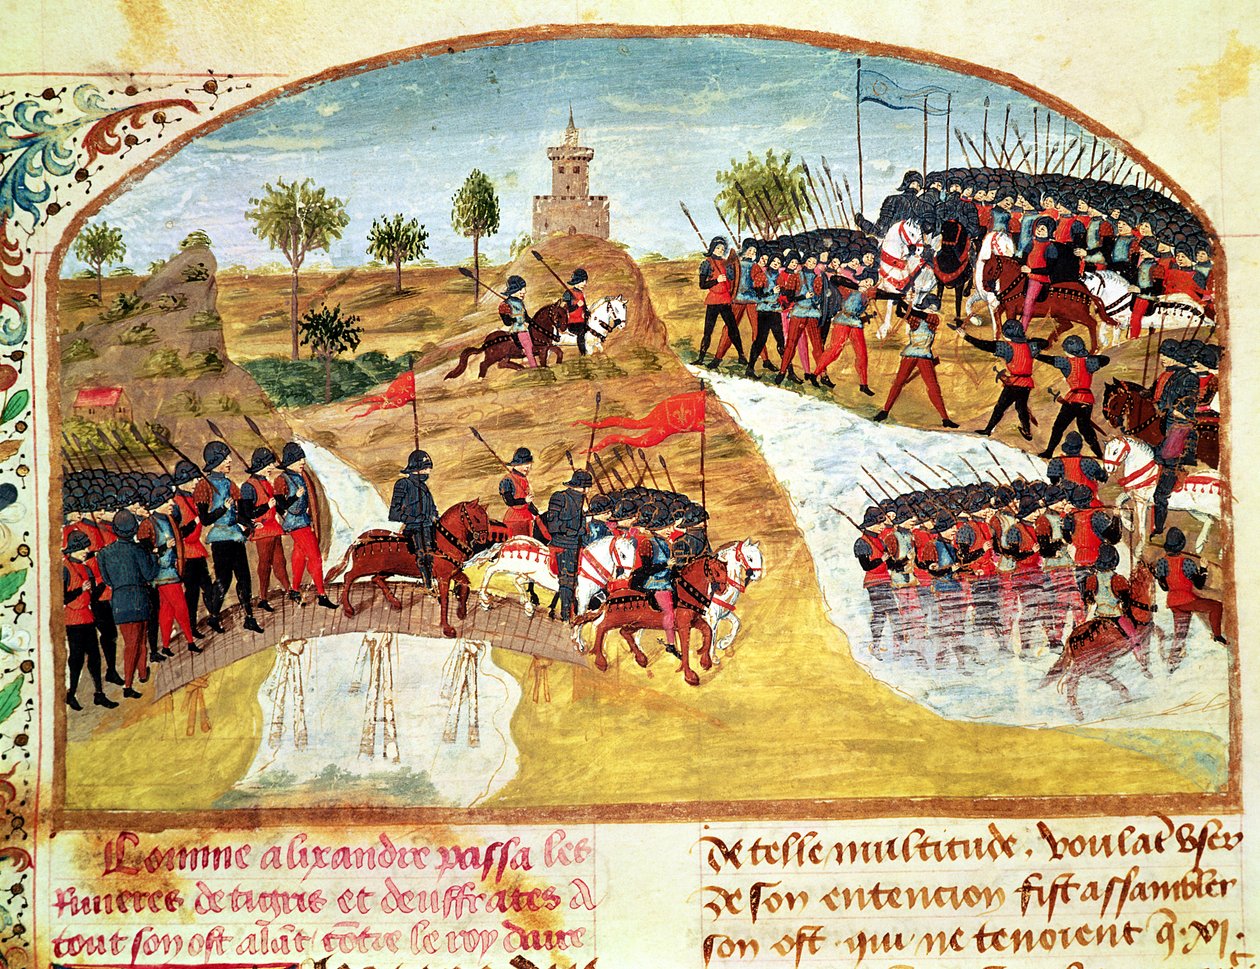 Comme alixandre passa les
rivieres de tigris et deuffrates a
tout son ost alāt cōtre le roy daire
de telle multitude. voulāt user
de son entencion fist assambler
son ost qui ne tenoient q̄ .xl.